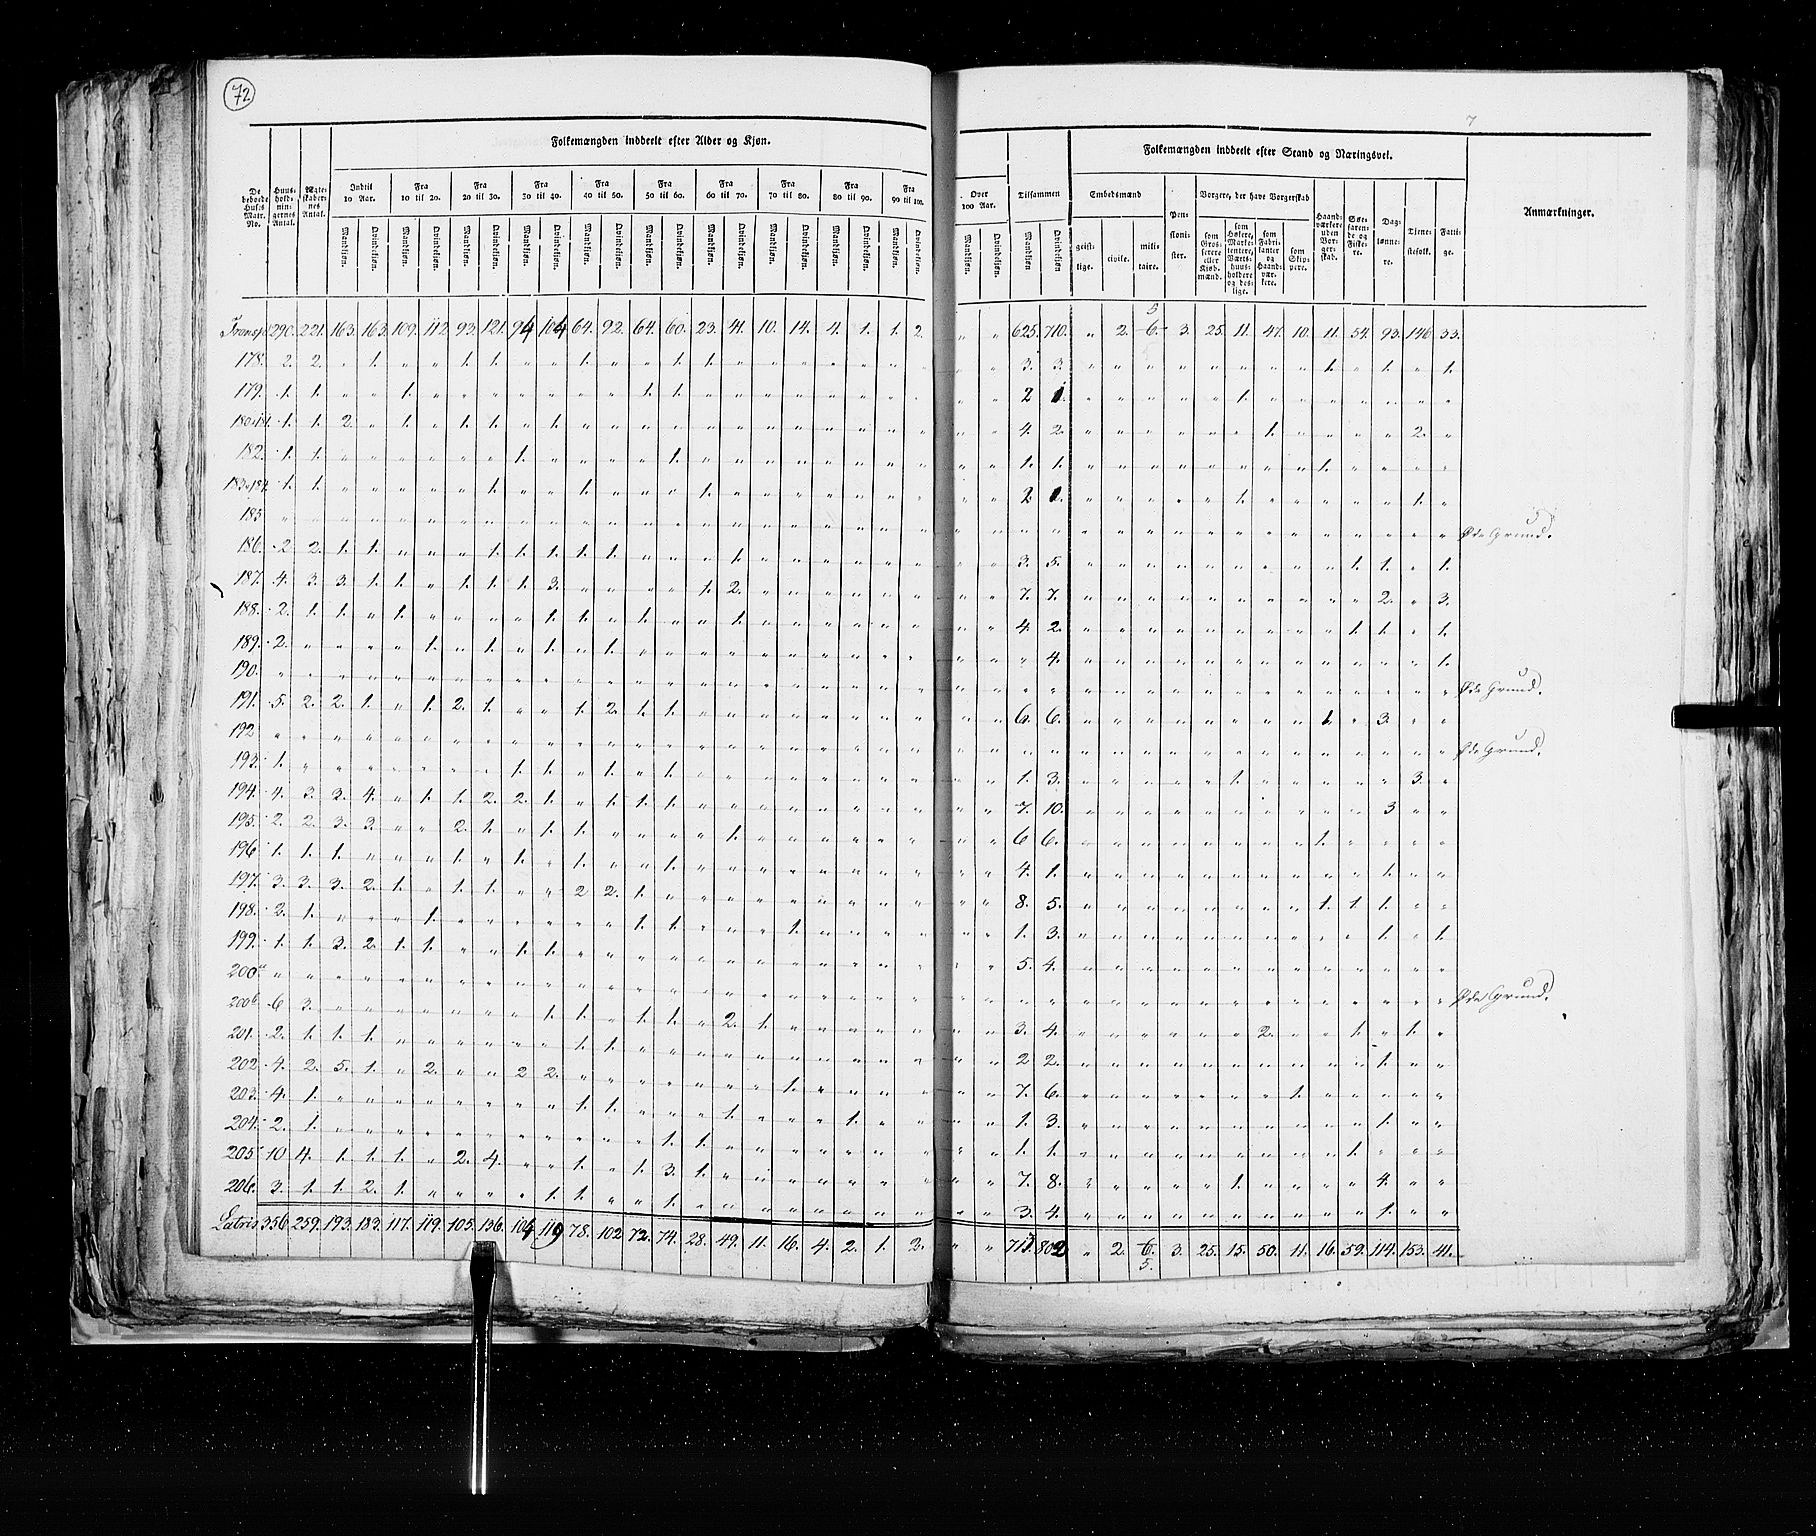 72
7
Folkemængden inddeelt efter Alder og Kjøn.
Folkemængden inddeelt efter Stand og Næringsvei.
De beboede Huses Matr. No.
Huusholdningernes Antal.
Ægteskabernes Antal.
Indtil 10 Aar.
Fra 10 til 20.
Fra 20 til 30.
Fra 30 til 40.
Fra 40 til 50.
Fra 50 til 60.
Fra 60 til 70.
Fra 70 til 80.
Fra 80 til 90.
Fra 90 til 100.
Over 100 Aar.
Tilsammen
Mandkjøn. Qvindekjøn.
Embedsmænd
geistlige. civile. militaire.
Pensionister.
Borgere, der have Borgerskab
som Grosserere eller Kjøbmænd.
som Høkere, Marketentere, Værtshuusholdere og deslige.
som Fabrikanter og Haandværkere.
som Skippere.
Haandværkere uden Borgerskab.
Søefarende og Fiskere.
Daglønnere.
Tienestefolk.
Fattige.
Anmærkninger.
Transp. 290. 221. 163. 163. 109. 112. 93. 121. 94 104 64. 92. 64. 60. 23. 41. 10. 14. 4. 1. 1. 2. " " 625. 710. " 2. 6. 5 3. 25. 11. 47. 10. 11. 54. 93. 146 33.
178. 2. 2. " 1. " " 1. 1. " " 1. " " 1. 1. " " " " " " " " " 3. 3. " " " " " " " " 1. " 1. " 1.
179. 1. 1. " " 1. " " " " " " " 1. 1. " " " " " " " " " " 2 1. " " " " " 1. " " " " " " "
180 & 181. 1. 1. 2. " 1. " 1. 1. " 1. " " " " " " " " " " " " " " 4. 2. " " " " " " 1. " " " " 2. "
182. 1. 1. " " " " " " 1. " " " " 1. " " " " " " " " " " 1. 1. " " " " " " " " 1. " " " "
183 & 184. 1. 1. " " " " " 1. " " 1. " " " 1. " " " " " " " " " 2 1. " " " " " 1. " " " " " 1. "
185 " Øde Grund.
186. 2. 2. 1. 1. " " " 1. 1. 1. 1. 1. " " " 1. " " " " " " " " 3. 5. " " " " " " " " " 1. 1. " 1.
187. 4. 3. 3. 1. 1. " 1. 1. 1. 3. " " " " 1. 2. " " " " " " " " 7. 7. " " " " " " " " " " 2. " 3.
188. 2. 1. 1. " 1. " " " " 1. 1. " 1. " " 1. " " " " " " " " 4. 2. " " " " " " " " " 1. 1. " 1.
189. 2. " " " " 1. " 1. " 1. " 1. " " " " " " " " " " " " " 4. " " " " " " " " " " " " 1.
190. " Øde Grund.
191. 5. 2. 2. 1. " 1. 2. 1. " " 1. 2. 1. 1. " " " " " " " " " " 6. 6. " " " " " " " " 1. " 3. " "
192 " Øde Grund.
193. 1. " " " " " " " 1. 1. " 1. " 1. " " " " " " " " " " 1. 3. " " " " " 1. " " " " " 3. "
194. 4. 3. 3. 4. " 1. 1. 2. 2. 1. " 1. 1. 1. " " " " " " " " " " 7. 10. " " " " " " " " " " 3 " "
195. 2. 2. 3. 3. " " 2. 1. " 1. 1. " " " " 1. " " " " " " " " 6 6. " " " " " " " " 1. " " " "
196 1. 1. 1. " " " 1. " 1. " 1. " " 1. " " " " " " " " " " 4. 1. " " " " " " " " " " 1. " "
197. 3. 3. 3. 2. 1. " 1. 1. " " 2 2. 1. " " " " " " " " " " " 8. 5. " " " " " " " " 1. 1. 1. " "
198. 2. 1. " " " 1. " " " " " " 1. 1. " " " 1. " " " " " " 1. 3. " " " " " " " " " " 1. " 1.
199. 1. 1. 3. 2. 1. 1. " " 1. 1. " " " " " " " " " " " " " " 5. 4. " " " " " " " " " " " " "
200a " Øde Grund.
200b 6 3. " " " " " " " 1. 1. " 1. 1. " 2. 1. " " " " " " " 3. 4. " " " " " " 2. " " 1. " 1. "
201. 2. 1. 1. 1. " " " " " " 1. 1. " " " " " " " " " " " " 2 2. " " " " " " " " " " 1. " "
202. 4. 2. 5. 1. " 2. " " 2 2. " " " " " " " 1. " " " " " " 7. 6. " " " " " " " 1. " " " " "
203. 4. 1. " " " " " " " " 1. 1. " " " 1. " " " 1. " " " " 1. 3. " " " " " " " " " " 1. " "
204. 2. 1. " " " " " " " " " " " 1. 1. " " " " " " " " " 1. 1. " " " " " " " " " 1. " " "
205 10 4. 1. 1. 1. " 2. 4. " " 1. " 1. 3. 1. " " " " " " " " " 7. 8. " " " " " 1. " " " " 4. " "
206. 3. 1. 1. 2. 1. " " " " 1. 1. " " 1. " " " " " " " " " " 3. 4. " " " " " " " " " " 1. " "
Lateris 356. 259. 193. 183. 117. 119. 105. 136. 104 119 78. 102 72. 74. 28. 49. 11. 16. 4. 2. 1. 2. " " 713 802 " 2. 6. 5. 3. 25. 15. 50. 11. 16. 59. 114. 153. 41.